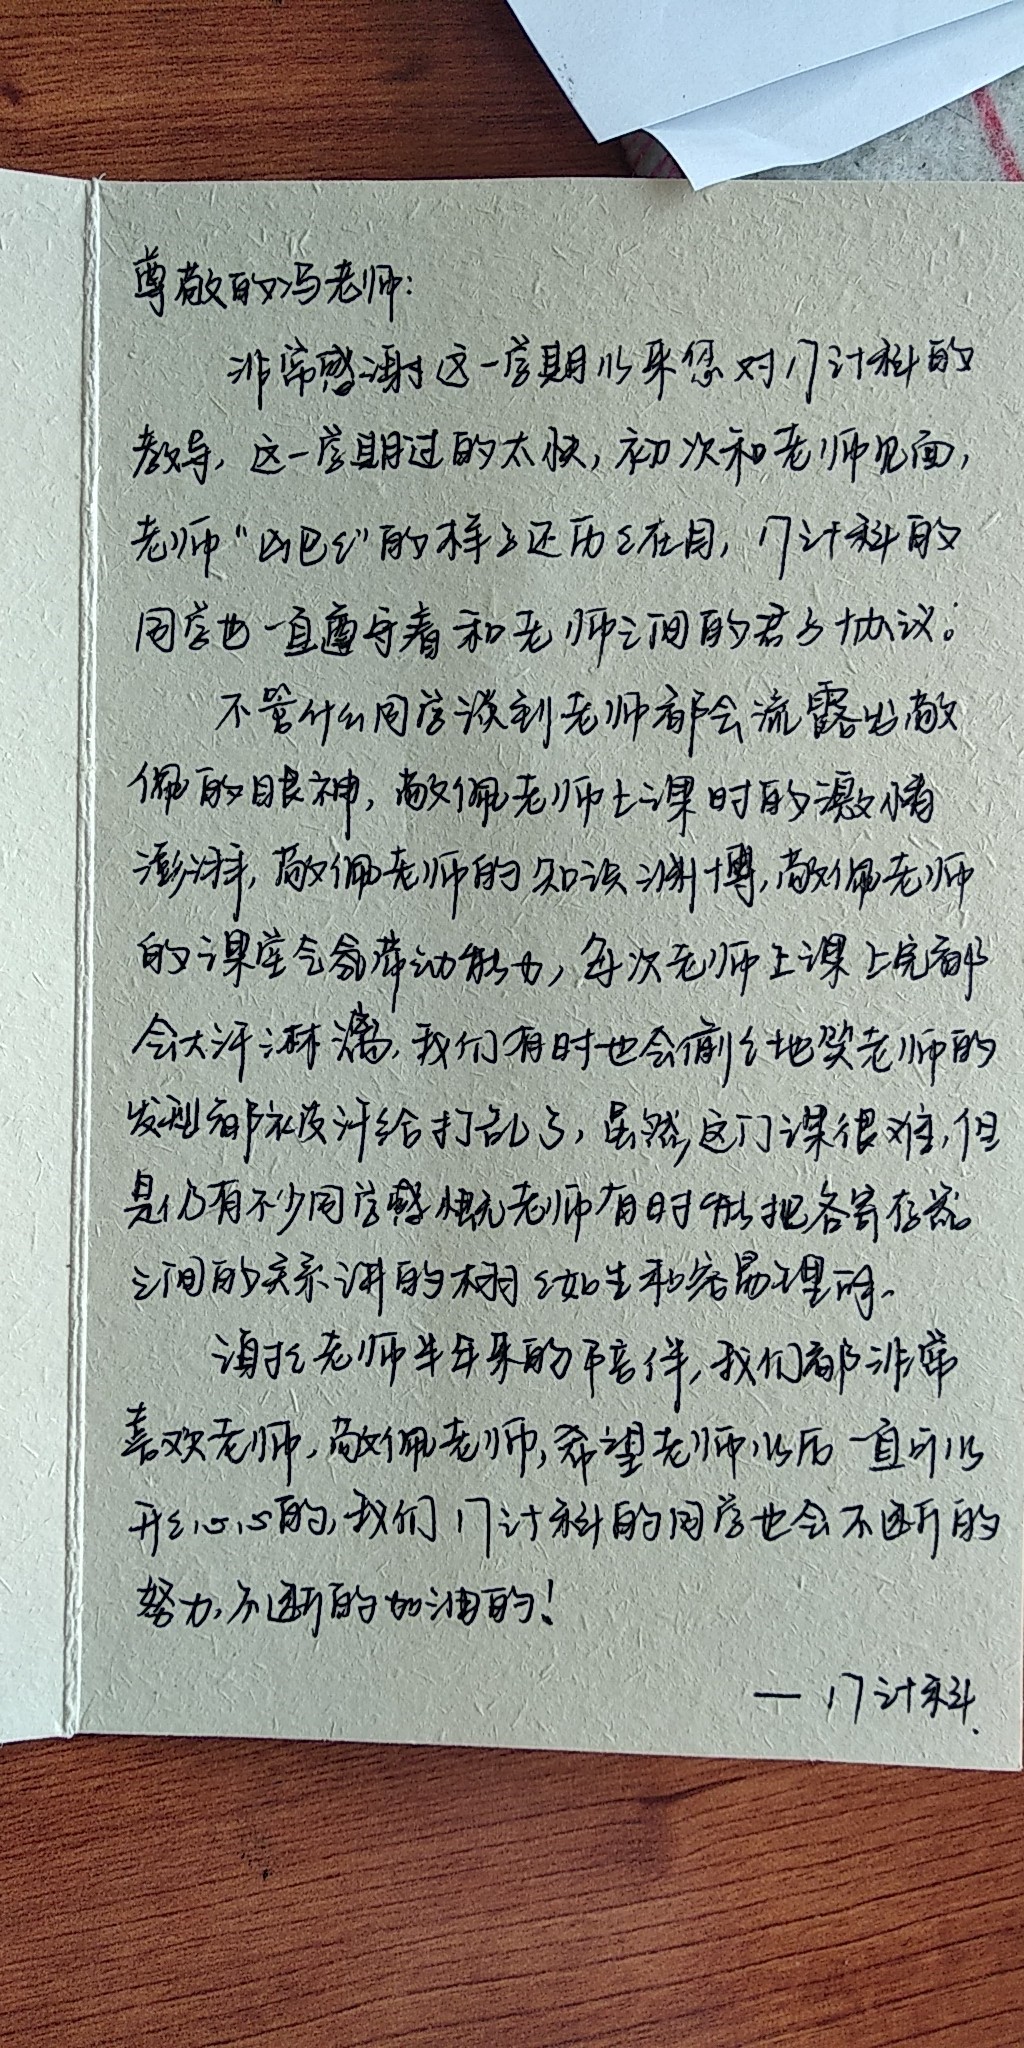 尊敬的冯老师：
非常感谢这一学期以来您对17计科的
教导，这一学期过的太快，初次和老师见面，
老师“凶巴巴”的样子还历历在目，17计科的
同学也一直遵守着和老师之间的君子协议。
不管什么同学谈到老师都会流露出敬
佩的眼神，敬佩老师上课时的激情
澎湃，敬佩老师的知识渊博，敬佩老师
的课堂气氛带动能力，每次老师上课上完都
会大汗淋漓，我们有时也会偷偷地笑老师的
发型都被汗给打乱了，虽然这门课很难，但
是仍有不少同学感慨老师有时能把各寄存器
之间的关系讲的栩栩如生和容易理解。
谢谢老师半年来的陪伴，我们都非常
喜欢老师，敬佩老师，希望老师以后一直可以
开开心心的，我们17计科的同学也会不断的
努力，不断的加油的！
— 17计科.